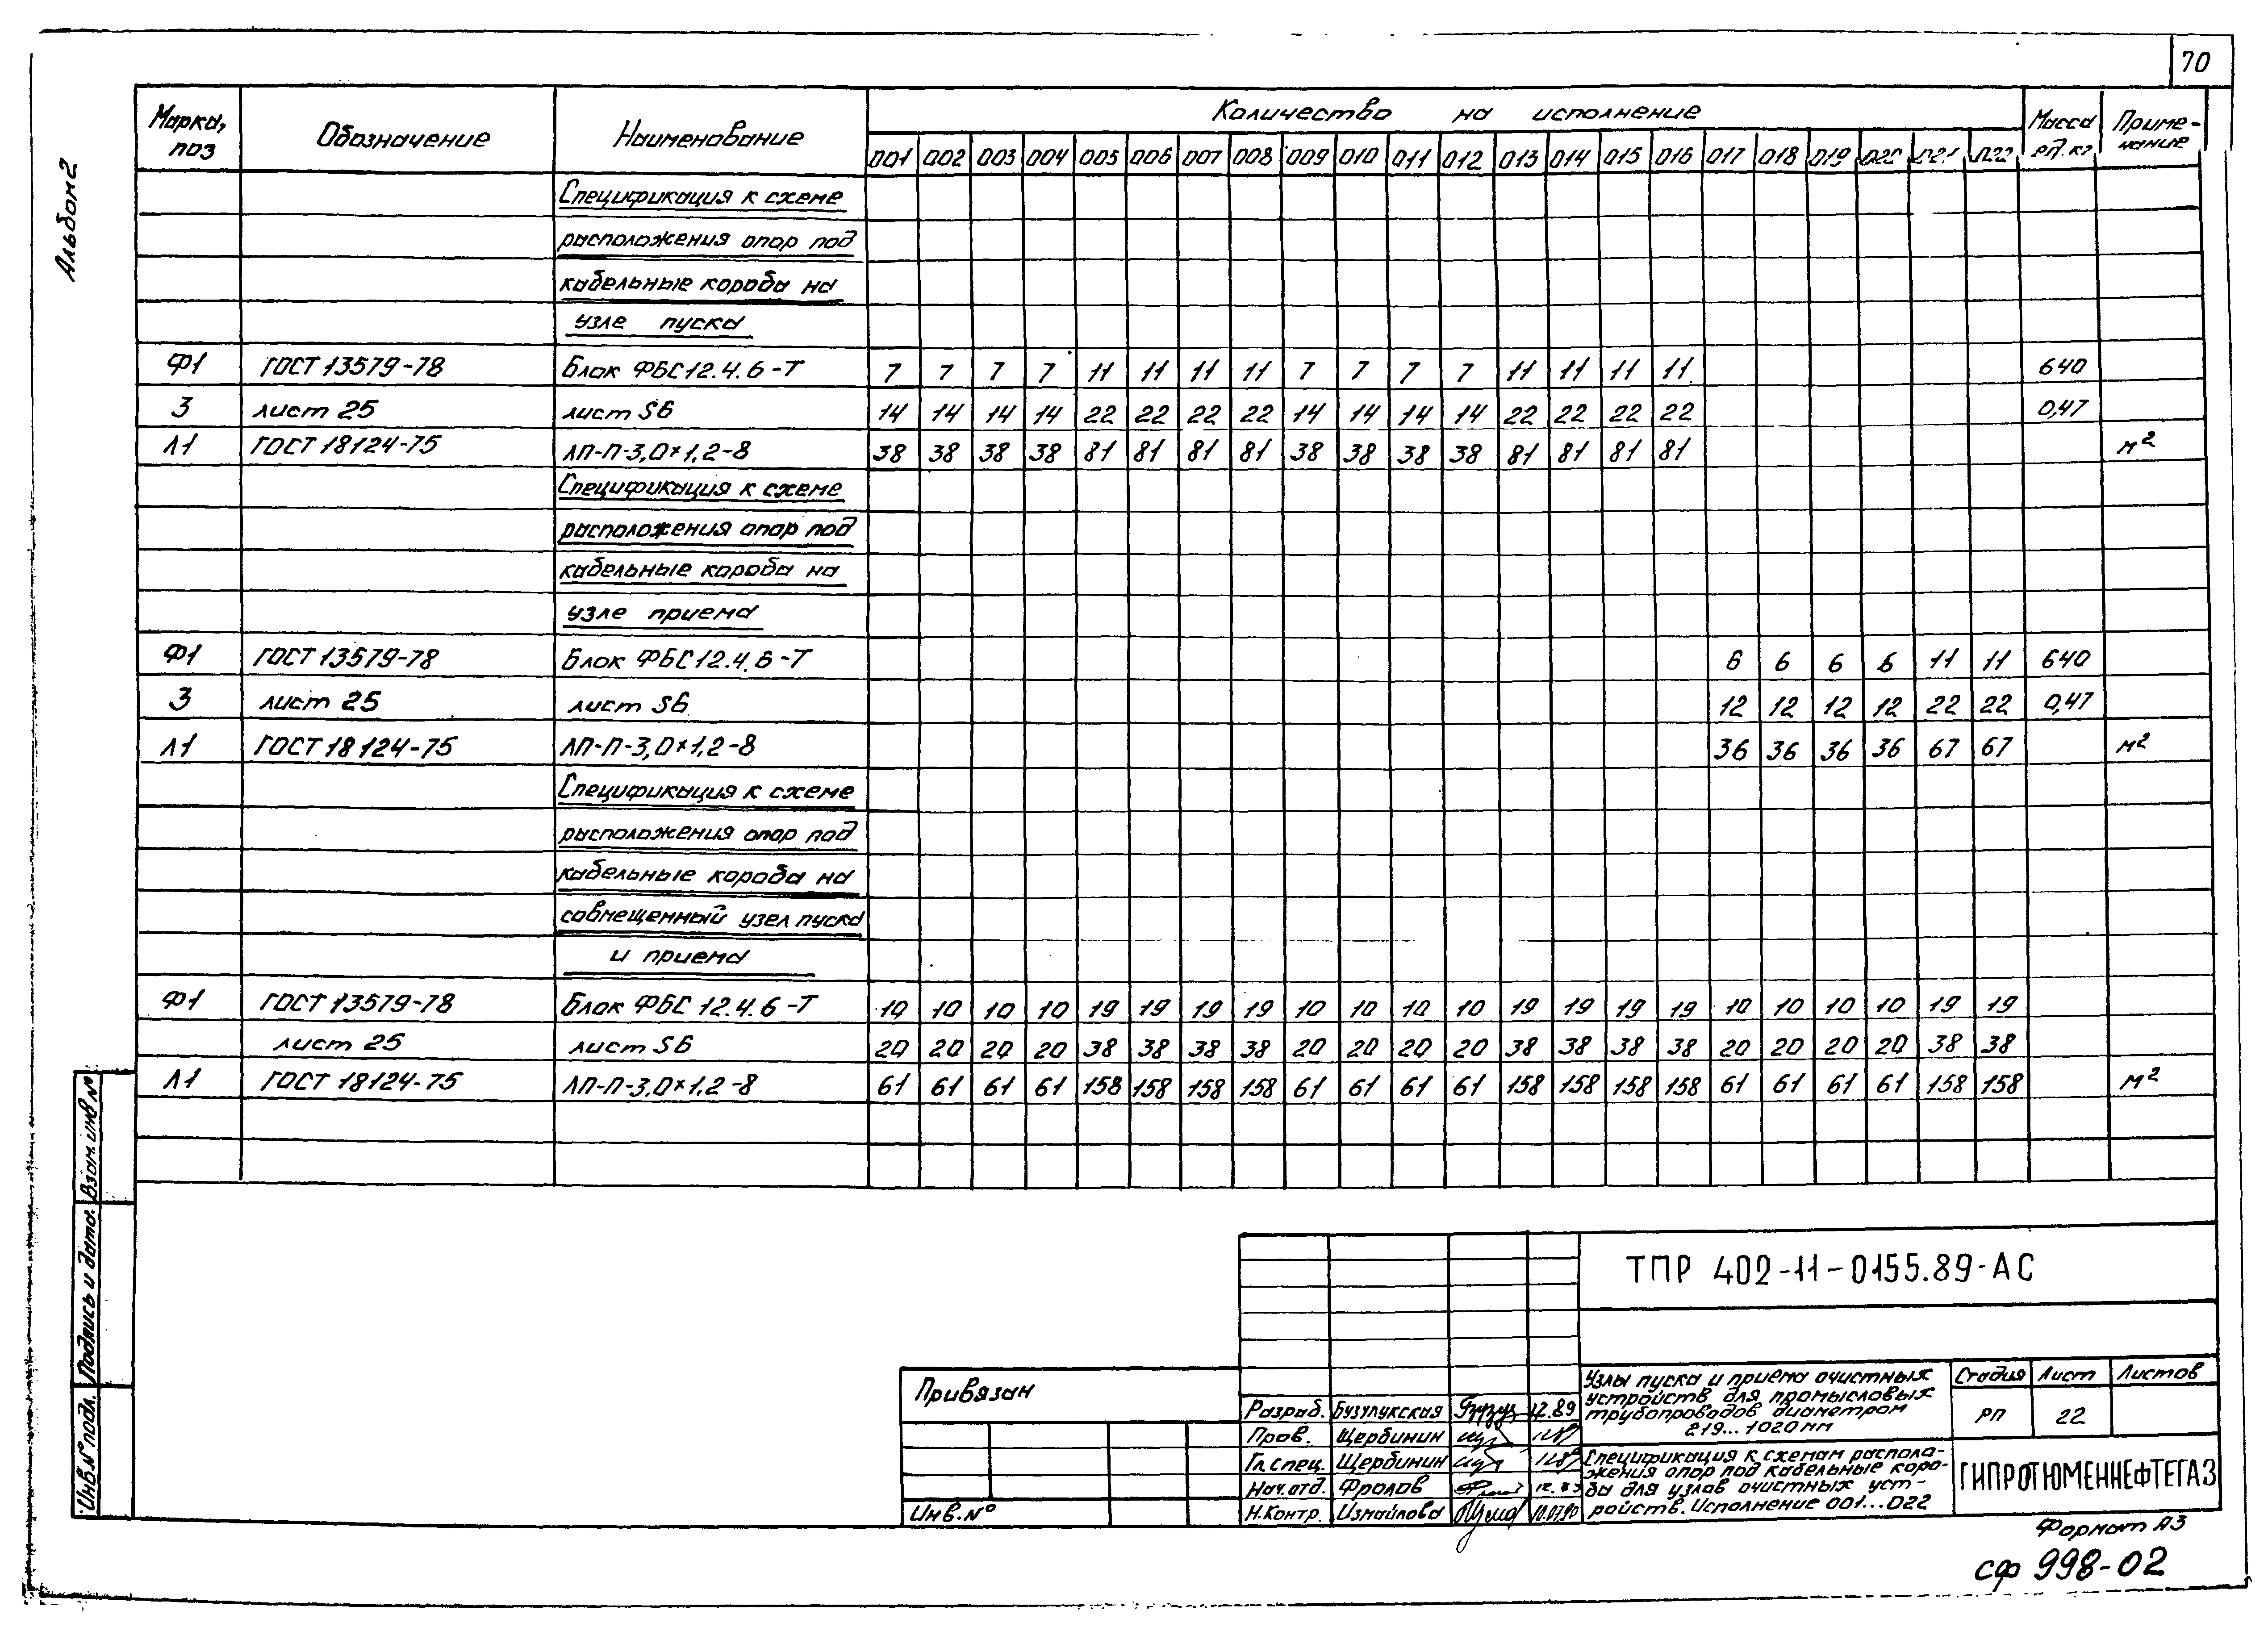 70
Альбом 2
Марка, поз | Обозначение | Наименование | Количество на исполнение | Масса ед. кг | Приме-чание
001 002 003 004 005 006 007 008 009 010 011 012 013 014 015 016 017 018 019 020 021 022
Спецификация к схеме
расположения опор под
кабельные короба на
узле пуска
Ф1 ГОСТ 13579-78 Блок ФБС 12.4.6-Т 7 7 7 7 11 11 11 11 7 7 7 7 11 11 11 11 640
3 лист 25 лист S6 14 14 14 14 22 22 22 22 14 14 14 14 22 22 22 22 0,47
Л1 ГОСТ 18124-75 ЛП-П-3,0×1,2-8 38 38 38 38 81 81 81 81 38 38 38 38 81 81 81 81 м²
Спецификация к схеме
расположения опор под
кабельные короба на
узле приема
Ф1 ГОСТ 13579-78 Блок ФБС 12.4.6-Т 6 6 6 6 11 11 640
3 лист 25 лист S6 12 12 12 12 22 22 0,47
Л1 ГОСТ 18124-75 ЛП-П-3,0×1,2-8 36 36 36 36 67 67 м²
Спецификация к схеме
расположения опор под
кабельные короба на
совмещенный узел пуска
и приема
Ф1 ГОСТ 13579-78 Блок ФБС 12.4.6-Т 10 10 10 10 19 19 19 19 10 10 10 10 19 19 19 19 10 10 10 10 19 19
лист 25 лист S6 20 20 20 20 38 38 38 38 20 20 20 20 38 38 38 38 20 20 20 20 38 38
Л1 ГОСТ 18124-75 ЛП-П-3,0×1,2-8 61 61 61 61 158 158 158 158 61 61 61 61 158 158 158 158 61 61 61 61 158 158 м²
Взам. инв №
Подпись и дата.
Инв. № подл.
Привязан
Инв. №
Разраб. Бузулукская 12.89
Пров. Щербинин
Гл. спец. Щербинин
Нач. отд. Фролов
Н. Контр. Измайлова
ТПР 402-11-0155.89-АС
Узлы пуска и приема очистных
устройств для промысловых
трубопроводов диаметром
219...1020 мм
Стадия Лист Листов
РП 22
Спецификация к схемам располо-
жения опор под кабельные коро-
ба для узлов очистных уст-
ройств. Исполнение 001...022
ГИПРОТЮМЕННЕФТЕГАЗ
Формат А3
сф 998-02